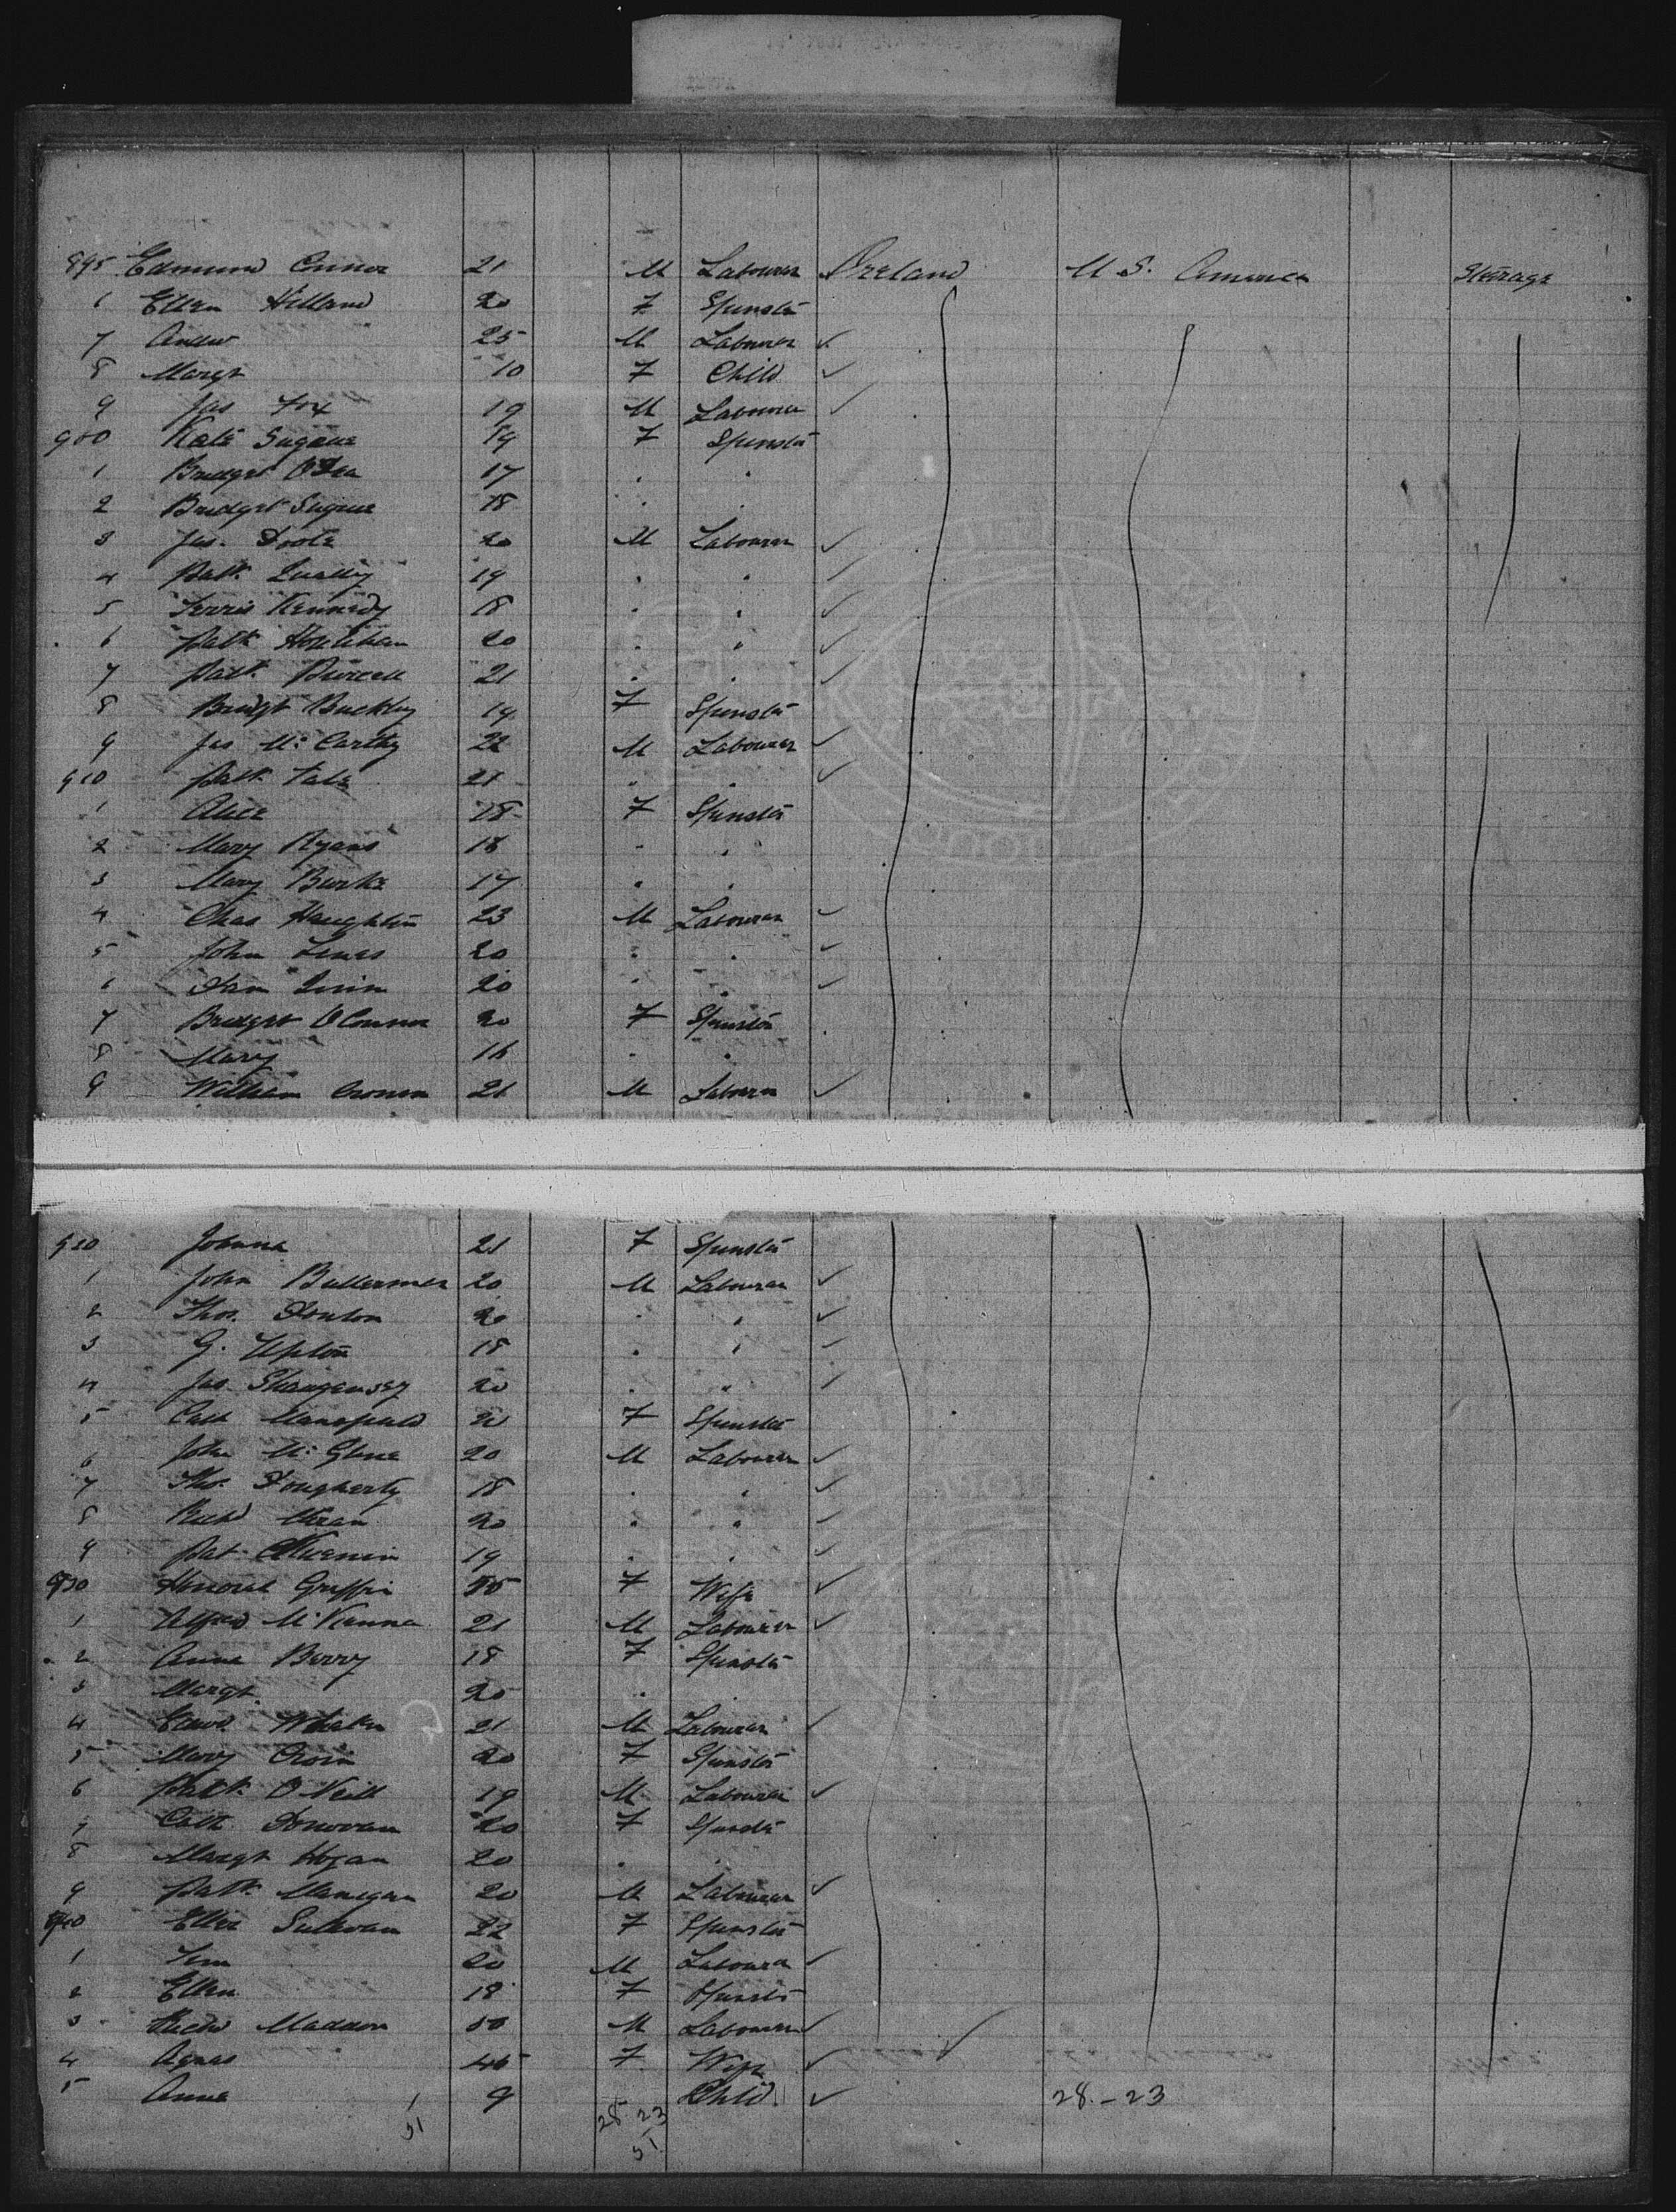 895 Edmund Connor 21 M Labourer Ireland U.S. America Steerage
6 Ellen Hilland 20 F Spinster
7 Andw 25 M Labourer ✓
8 Margt 10 F Child ✓
9 Jas Fox 19 M Labourer ✓
900 Kate Sugrue 19 F Spinster
1 Bridget O'Dea 17 " "
2 Bridget Sugrue 18 " "
3 Jas. Doole 20 M Labourer ✓
4 Patk. Lually 19 " " ✓
5 Kennedy 18 " " ✓
6 Patk 20 " " ✓
7 Patk. Purcell 21 " " ✓
8 Bridgt Buckley 19 F Spinster
9 Jas McCarthy 22 M Labourer ✓
910 Patk. Tale 21 " " ✓
1 Alice 18 F Spinster
2 Mary Ryans 18 " "
3 Mary Burke 17 " "
4 Chas Haughton 23 M Labourer ✓
5 John Lines 20 " " ✓
6 Dan Quin 20 " " ✓
7 Bridget O'Connor 20 F Spinster
8 Mary 16 " "
9 William Cronin 21 M Labourer ✓
920 Johnna 21 F Spinster
1 John 20 M Labourer ✓
2 Thos. Donlon 20 " " ✓
3 G. Upton 18 " " ✓
4 Jas. 20 " " ✓
5 Cath Mansfield 20 F Spinster
6 John McGlone 20 M Labourer ✓
7 Thos. Dougherty 18 " " ✓
8 Richd 20 " " ✓
9 Pat. 19 " " ✓
930 Honorah Griffin 55 F Wife ✓
1 Alfred McKenna 21 M Labourer ✓
2 Anne Berry 18 F Spinster
3 Margt. 20 " "
4 Edwd. 21 M Labourer ✓
5 Mary Cronin 20 F Spinster
6 Patk. O'Neill 19 M Labourer ✓
7 Cath Donovan 20 F Spinster
8 Margt Hogan 20 " "
9 Patk. 20 M Labourer ✓
940 Ellen Sullivan 22 F Spinster
1 Tim 20 M Labourer ✓
2 Ellen 18 F Spinster
3 Richd Madden 50 M Labourer ✓
4 Agnes 45 F Wife ✓
5 Anne 9 Child ✓ 28.-23
1 28 23
51 51